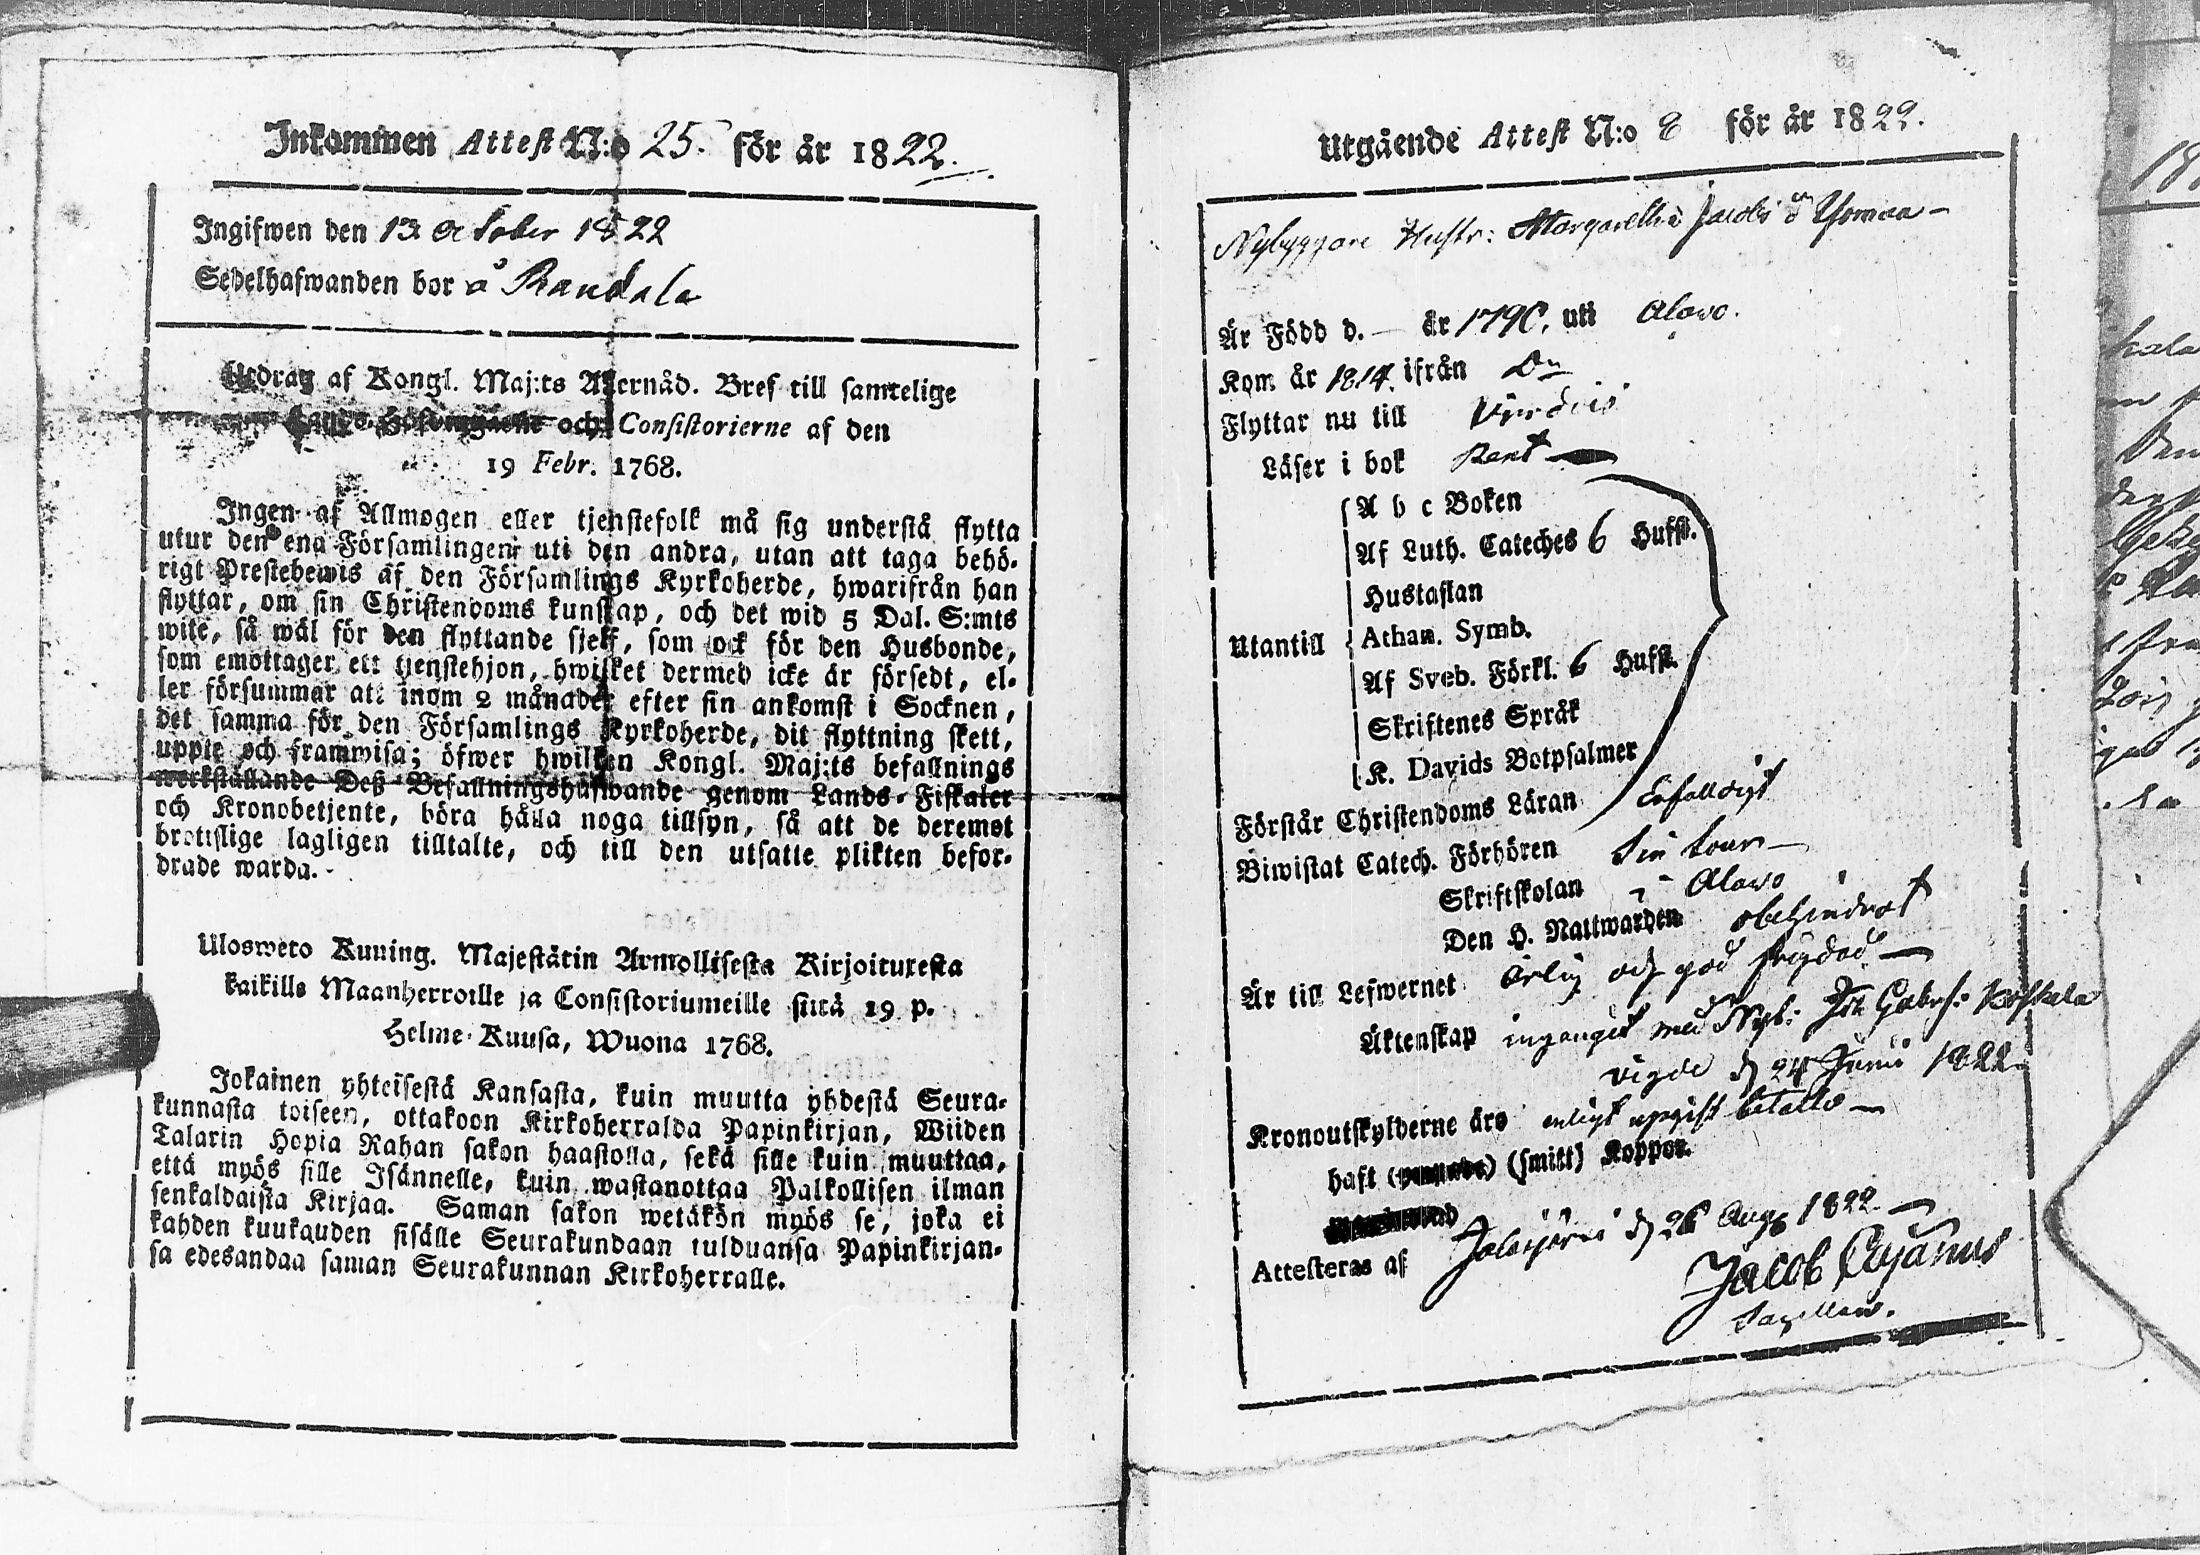 Inkommen Attest N:o 25. för år 1822.
Ingifwen den 13 October 1822
Sedelhafwanden bor å Randala
Utdrag af Kongl. Maj:ts Allernåd. Bref till samtelige
och Consistorierne af den
19 Febr. 1768.
Ingen af Allmogen eller tjenstefolk må sig understå flytta
utur den ena Församlingen uti den andra, utan att taga behö-
rigt Prestebewis af den Församlings Kyrkoherde, hwarifrån han
flyttar, om sin Christendoms kunskap, och det wid 5 Dal. S:mts
wite, så wäl för den flyttande sjelf, som ock för den Husbonde,
som emottager ett tjenstehjon, hwilket dermed icke är försedt, el-
ler försummar att inom 2 månader efter sin ankomst i Socknen,
det samma för den Församlings Kyrkoherde, dit flyttning skett,
uppte och framwisa; öfwer hwilken Kongl. Maj:ts befallnings
werkställande Deß Befallningshafwande genom Lands-Fiskaler
och Kronobetjente, böra hålla noga tillsyn, så att de deremot
brottslige lagligen tilltalte, och till den utsatte plikten befor-
drade warda.
Ulosweto Kuning. Majestätin Armollisesta Kirjoituresta
kaikille Maanherroille ja Consistoriumeille siitä 19 p.
Helme-Kuusa, Wuona 1768.
Jokainen yhteisestä Kansasta, kuin muutta yhdestä Seura-
kunnasta toiseen, ottakoon Kirkoherralda Papinkirjan, Wiiden
Talarin Hopia Rahan sakon haastolla, sekä sille kuin muuttaa,
että myös sille Isännelle, kuin wastanottaa Palkollisen ilman
senkaldaista Kirjaa. Saman sakon wetäkön myös se, joka ei
kahden kuukauden sisälle Seurakundaan tulduansa Papinkirjan-
sa edesandaa saman Seurakunnan Kirkoherralle.
Utgående Attest N:o 8 för år 1822.
Nybyggare Hustr: Margaretha Jacobs å
Är Född d. — år 1790, uti Alavo.
Kom år 1814. ifrån Do
Flyttar nu till
Läser i bok Rent
A b c Boken
Af Luth. Cateches 6 Hufst.
Hustaflan
Utantill Athan. Symb.
Af Sveb. Förkl. 6 Hufst.
Skriftenes Språk
K. Davids Botpsalmer
Förstår Christendoms Läran Enfalldigt
Biwistat Catech. Förhören
Skriftskolan i Alavo
Den H. Nattwarden obehindrat
Är till Lefwernet ärlig och god frägdad
Äktenskap ingånget med Nyb: Joh Gabrs: Koskela
vigde d 24 Junii 1822
Kronoutskylderne äro enligt upgift betalte
haft (smitt) Koppor.
Attesteras af Jalasjervi d 26 Aug 1822
Jacob Cajanus
Sacellan.